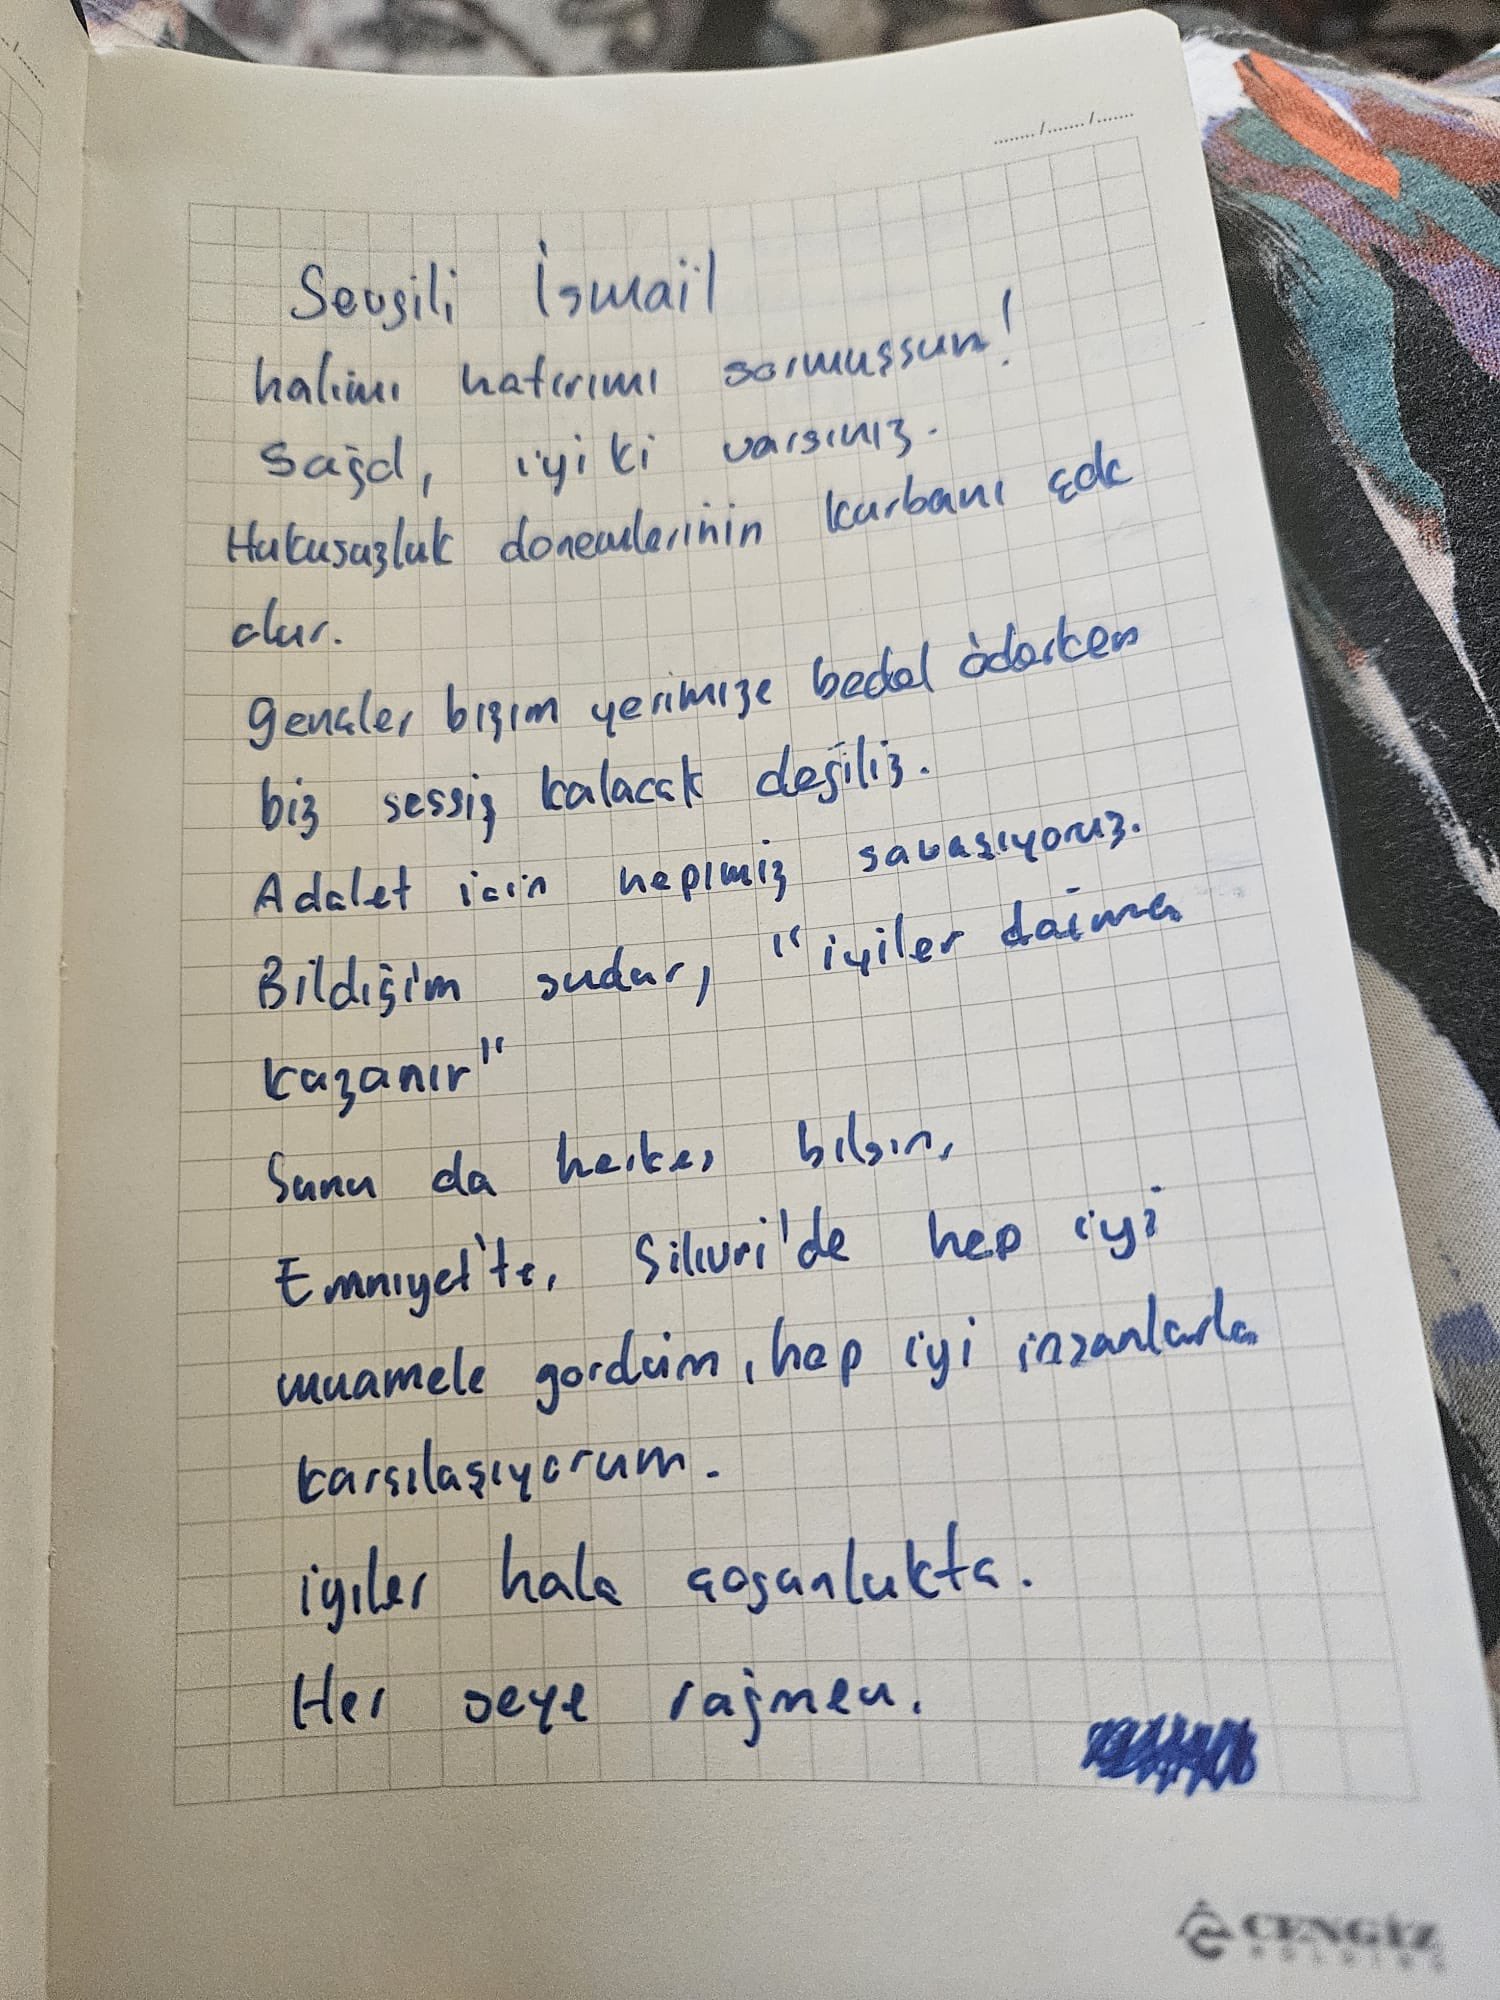 ......./......./.......
Sevgili İsmail
halımı hatırımı sormuşsun!
Sağol, iyi ki varsınız.
Hukusuzluk donemlerinin kurbanı çok
olur.
gençler bizim yerimize bedel öderken
biz sessiz kalacak değiliz.
Adalet icin hepimiz savaşıyoruz.
Bildiğim sudur, "iyiler daima
kazanır"
Sunu da herkes bilsin,
Emniyet'te, Silivri'de hep iyi
muamele gordüm, hep iyi insanlarla
karsılaşıyorum.
iyiler hala çoğunlukta.
Her seye rağmen.
CENGİZ
HOLDİNG